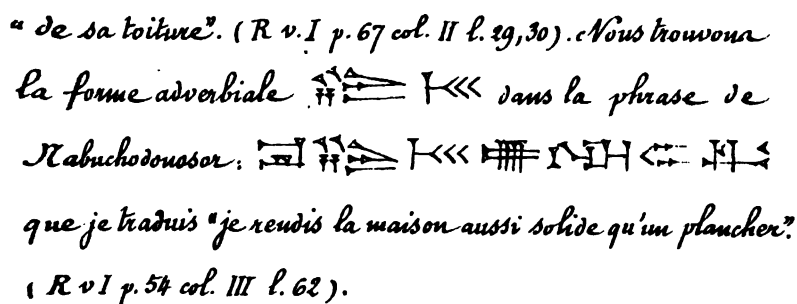 "de sa toiture". (R v. I p. 67 col. II l. 29, 30). Nous trouvons
la forme adverbiale dans la phrase de
Nabuchodonosor:
que je traduis "je rendis la maison aussi solide qu'un plancher".
(R v I p. 54 col. III l. 62).